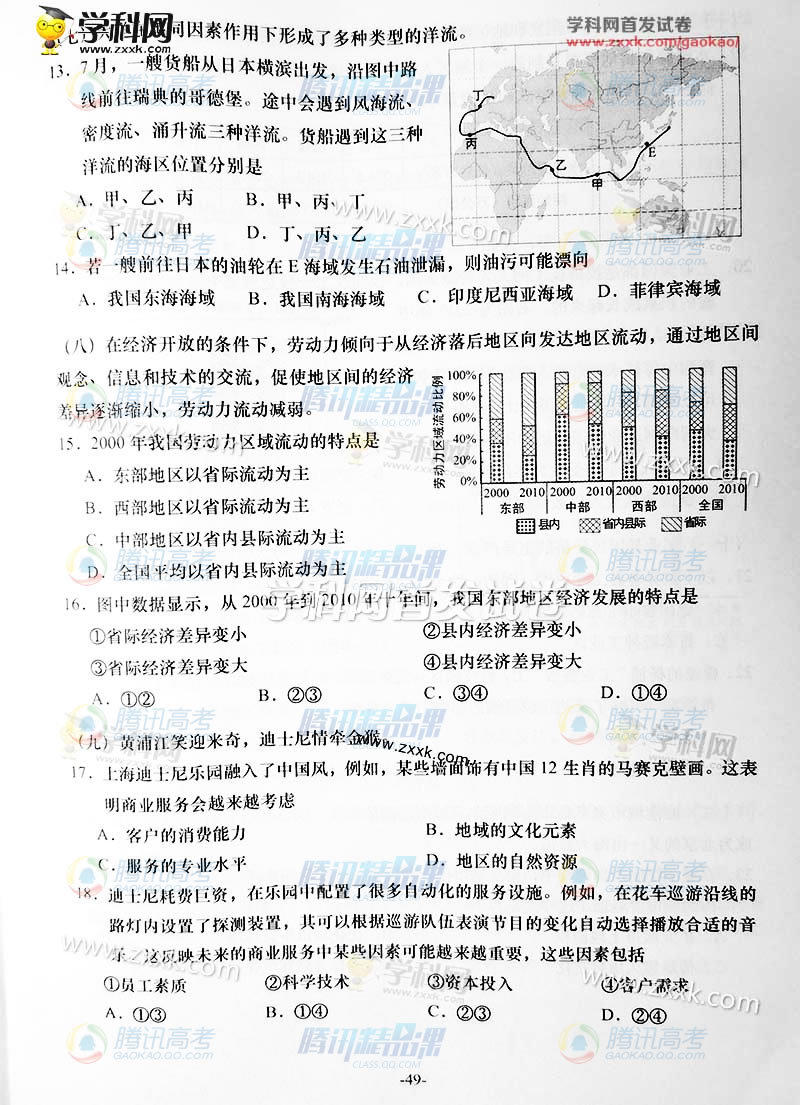 学科网
www.zxxk.com
学科网首发试卷
www.zxxk.com/gaokao/
同因素作用下形成了多种类型的洋流。
13．7月，一艘货船从日本横滨出发，沿图中路
线前往瑞典的哥德堡。途中会遇到风海流、
密度流、涌升流三种洋流。货船遇到这三种
洋流的海区位置分别是
A．甲、乙、丙 B．甲、丙、丁
C．丁、乙、甲 D．丁、丙、乙
丁
丙
乙
甲
E
14．若一艘前往日本的油轮在 E 海域发生石油泄漏，则油污可能漂向
A．我国东海海域 B．我国南海海域 C．印度尼西亚海域 D．菲律宾海域
（八）在经济开放的条件下，劳动力倾向于从经济落后地区向发达地区流动，通过地区间
观念、信息和技术的交流，促使地区间的经济
差异逐渐缩小，劳动力流动减弱。
15．2000 年我国劳动力区域流动的特点是
A．东部地区以省际流动为主
B．西部地区以省际流动为主
C．中部地区以省内县际流动为主
D．全国平均以省内县际流动为主
劳动力区域流动比例
100%
80%
60%
40%
20%
0%
2000 2010 2000 2010 2000 2010 2000 2010
东部 中部 西部 全国
县内 省内县际 省际
16．图中数据显示，从 2000 年到 2010 年十年间，我国东部地区经济发展的特点是
①省际经济差异变小 ②县内经济差异变小
③省际经济差异变大 ④县内经济差异变大
A．①② B．②③ C．③④ D．①④
（九）黄浦江笑迎米奇，迪士尼情牵金猴
17．上海迪士尼乐园融入了中国风，例如，某些墙面饰有中国 12 生肖的马赛克壁画。这表
明商业服务会越来越考虑
A．客户的消费能力 B．地域的文化元素
C．服务的专业水平 D．地区的自然资源
18．迪士尼耗费巨资，在乐园中配置了很多自动化的服务设施。例如，在花车巡游沿线的
路灯内设置了探测装置，其可以根据巡游队伍表演节目的变化自动选择播放合适的音
乐。这反映未来的商业服务中某些因素可能越来越重要，这些因素包括
①员工素质 ②科学技术 ③资本投入 ④客户需求
A．①③ B．①④ C．②③ D．②④
-49-